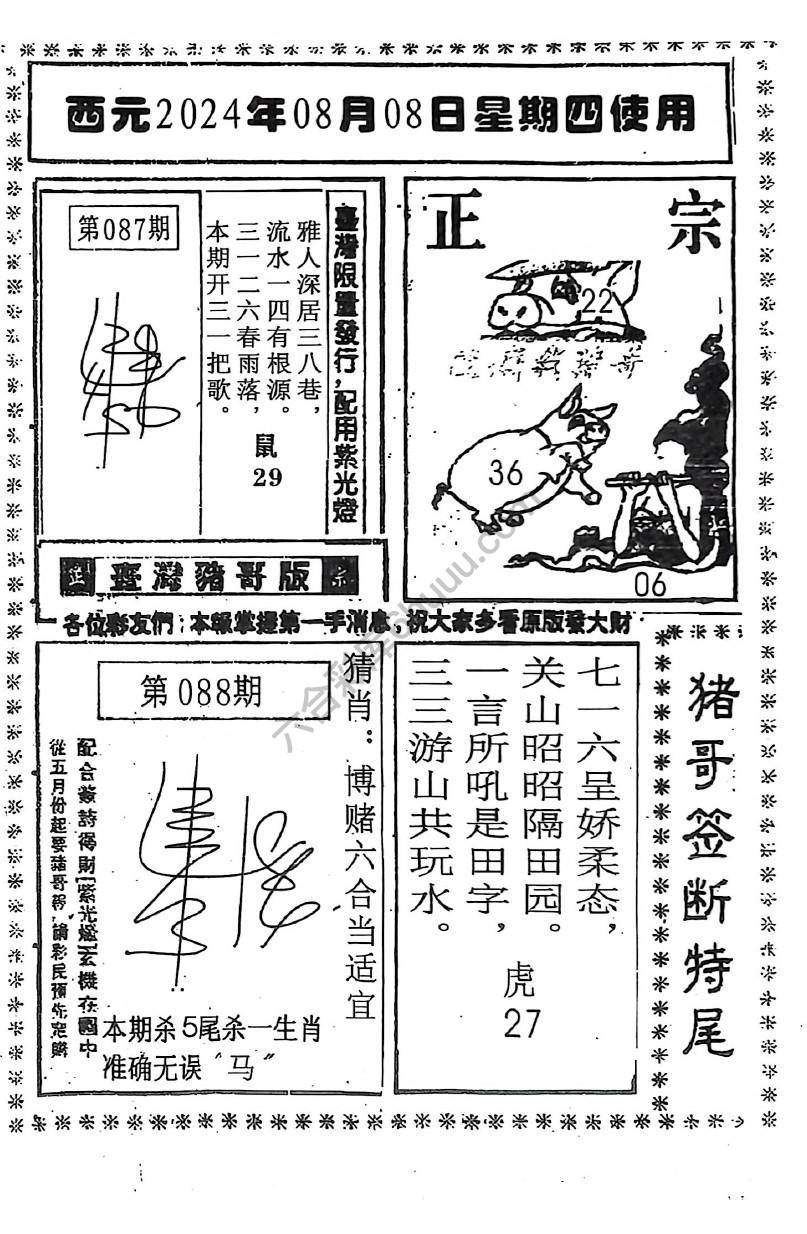 西元2024年08月08日星期四使用
第087期
雅人深居三八巷，
流水一四有根源。
三一二六春雨落，
本期开三一把歌。
鼠
29
臺灣限量發行，配用紫光燈
正宗
22
36
06
正 臺灣豬哥版 宗
各位彩友們：本報掌握第一手消息，祝大家多看原版發大財
第088期
猜肖：博赌六合当适宜
配合簽詩得財紫光燈玄機在圖中
本期杀5尾杀一生肖
准确无误“马”
七一六呈娇柔态，
关山昭昭隔田园。
一言所吼是田字，
三三游山共玩水。
虎
27
猪哥签断特尾